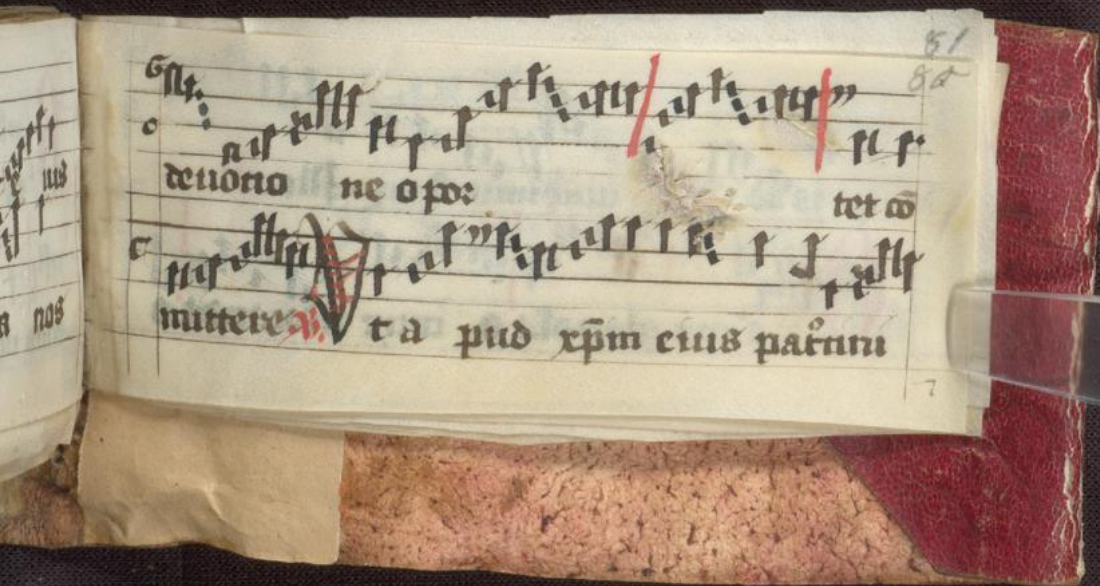 81
82
deuotio ne opor tet cō
mittere ℟. Vt a pud xp̄m eius patͦcini
us
a nos